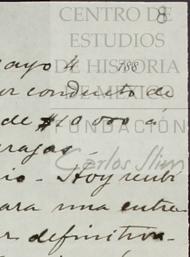 CENTRO DE
ESTUDIOS
DE HISTORIA
DE MÉXICO
FUNDACIÓN
Carlos Slim
8
ayo 4 188
r conducto de
de $10.000 á
ragas
io. Hoy recibí
ara una entre
r definitiva-